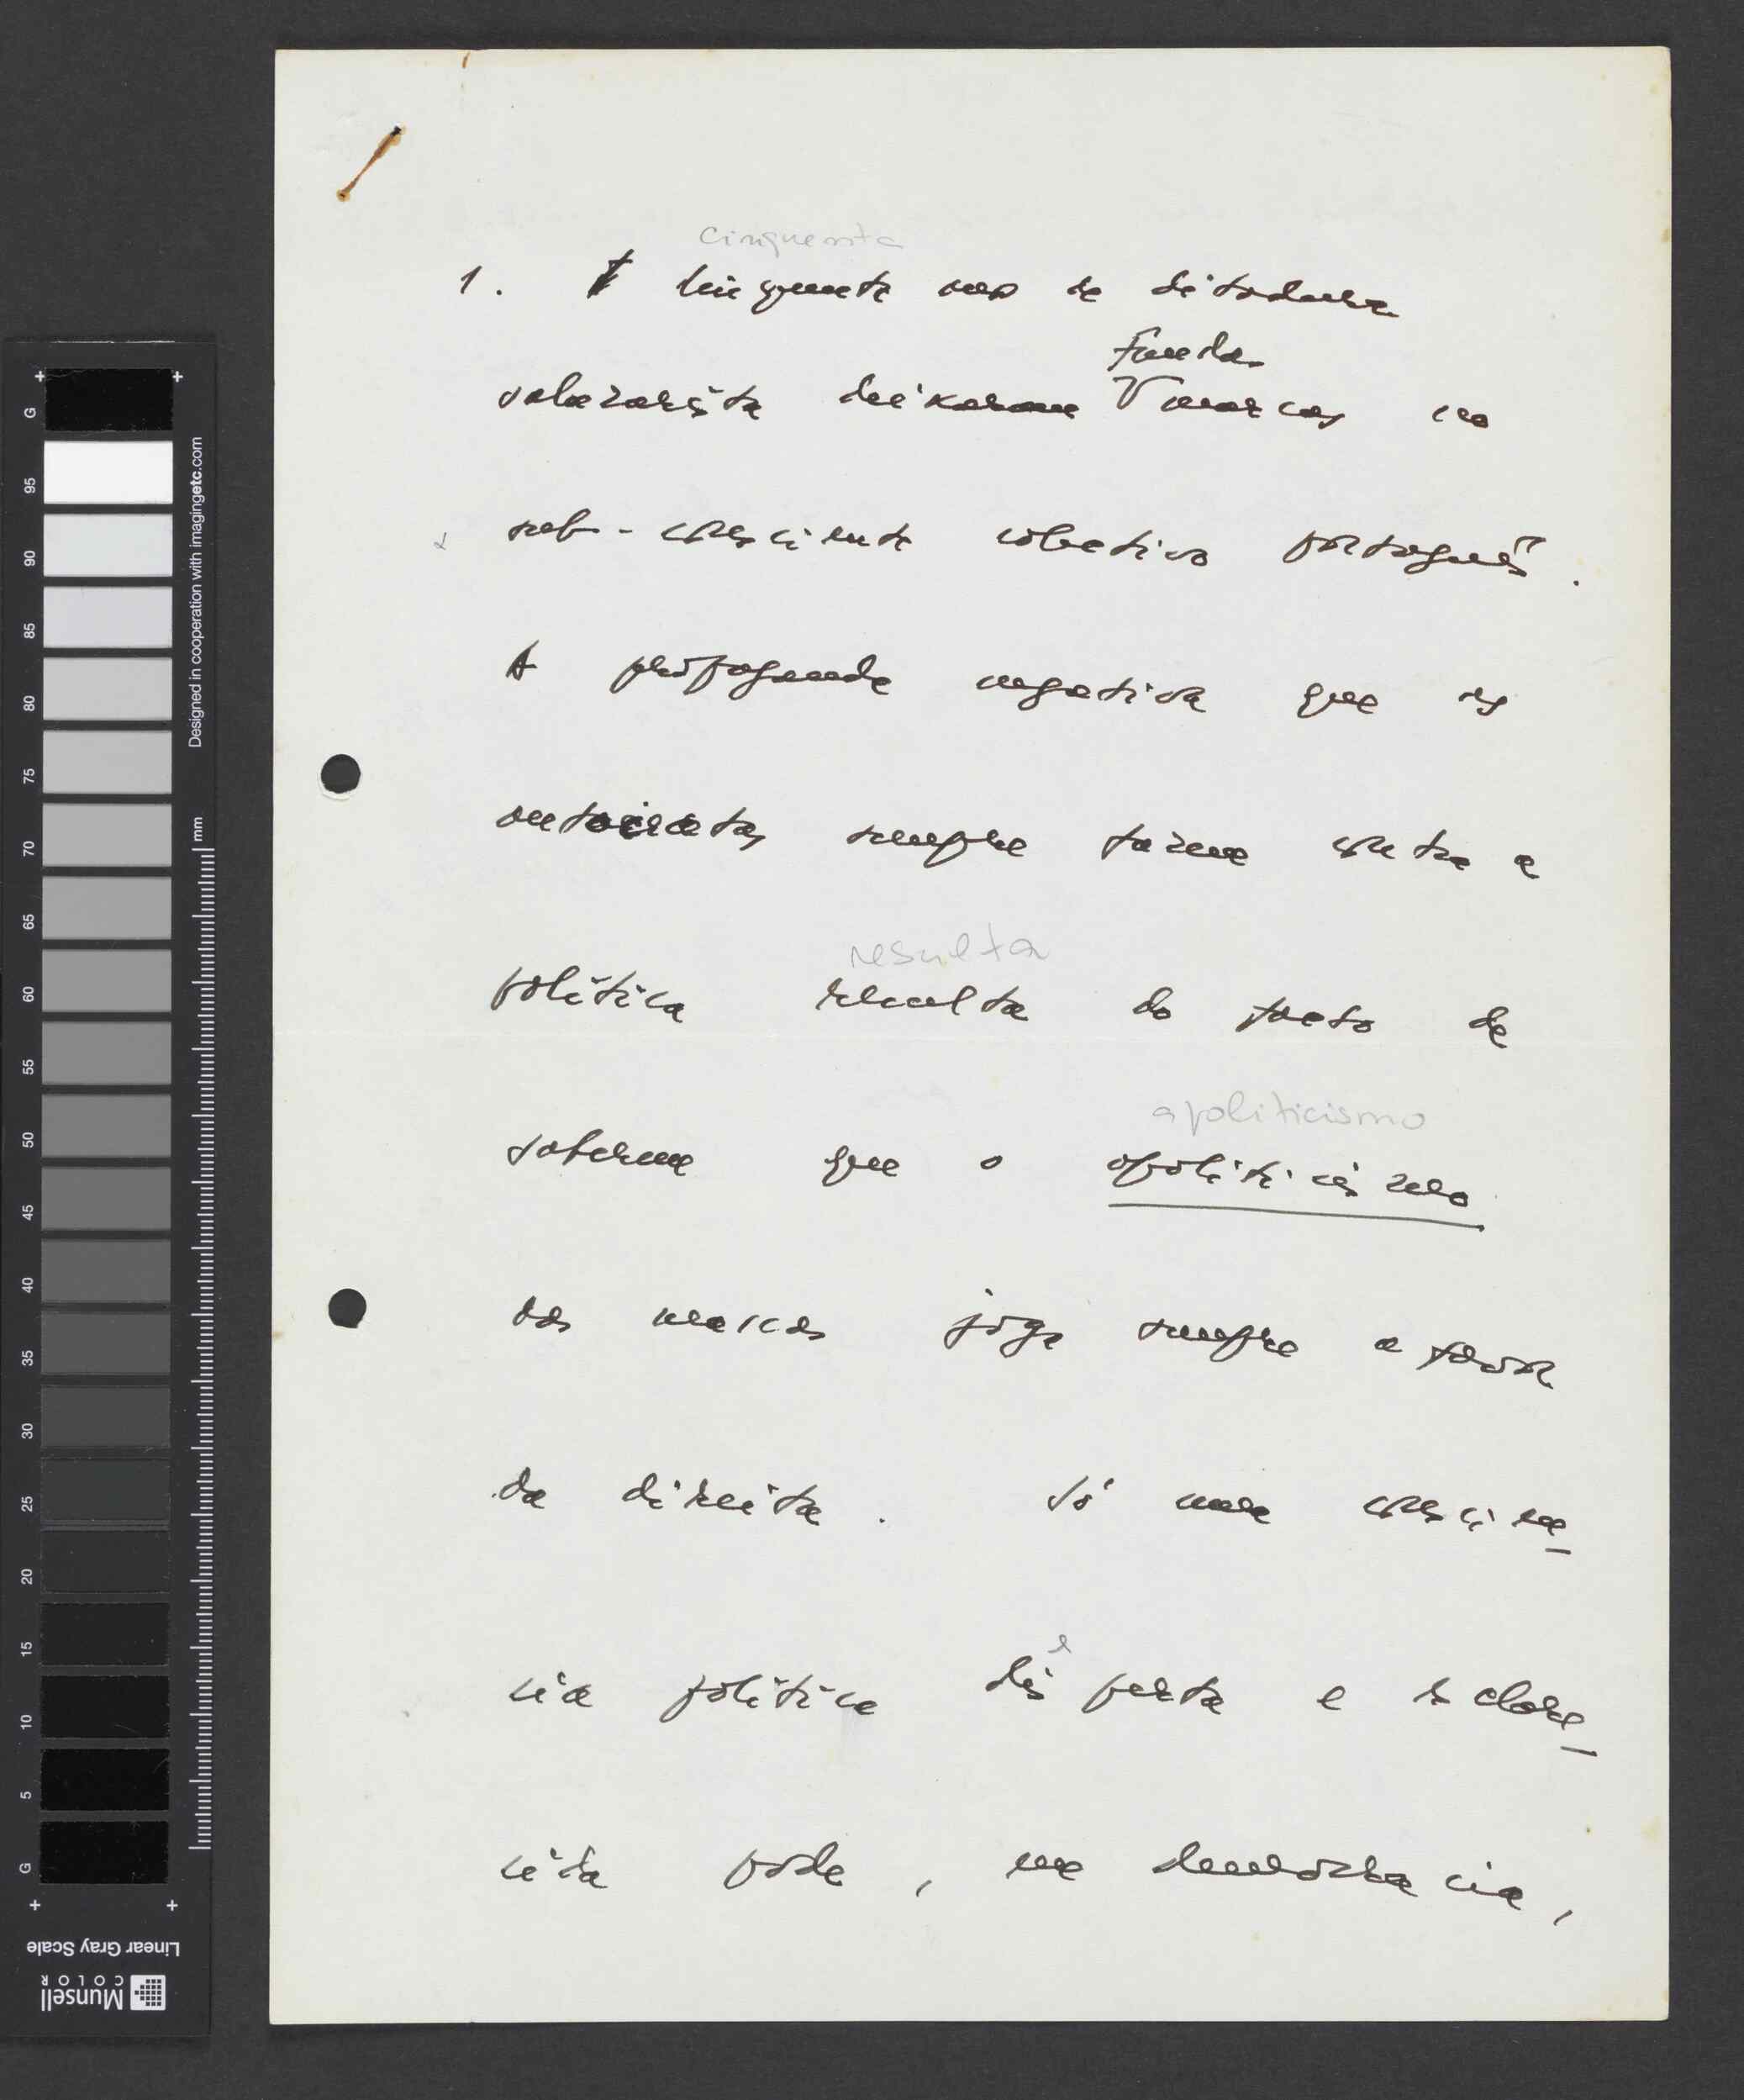 cinquenta
1. Cinquenta anos de ditadura
fundas
salazarista deixaram marcas no
sub-consciente colectivo português.
A propaganda negativa que os
autocratas sempre fazem contra a
resulta
política resulta do facto de
apoliticismo
saberem que o apoliticismo
das massas joga sempre a favor
da direita. Só uma consciên_
e
cia política desperta e esclare_
cida pode, na democracia,
G
95
90
85
80
75
70
65
60
55
50
45
40
35
30
25
20
15
10
5
G
Designed in cooperation with imagingetc.com
mm
Linear Gray Scale
Munsell
COLOR